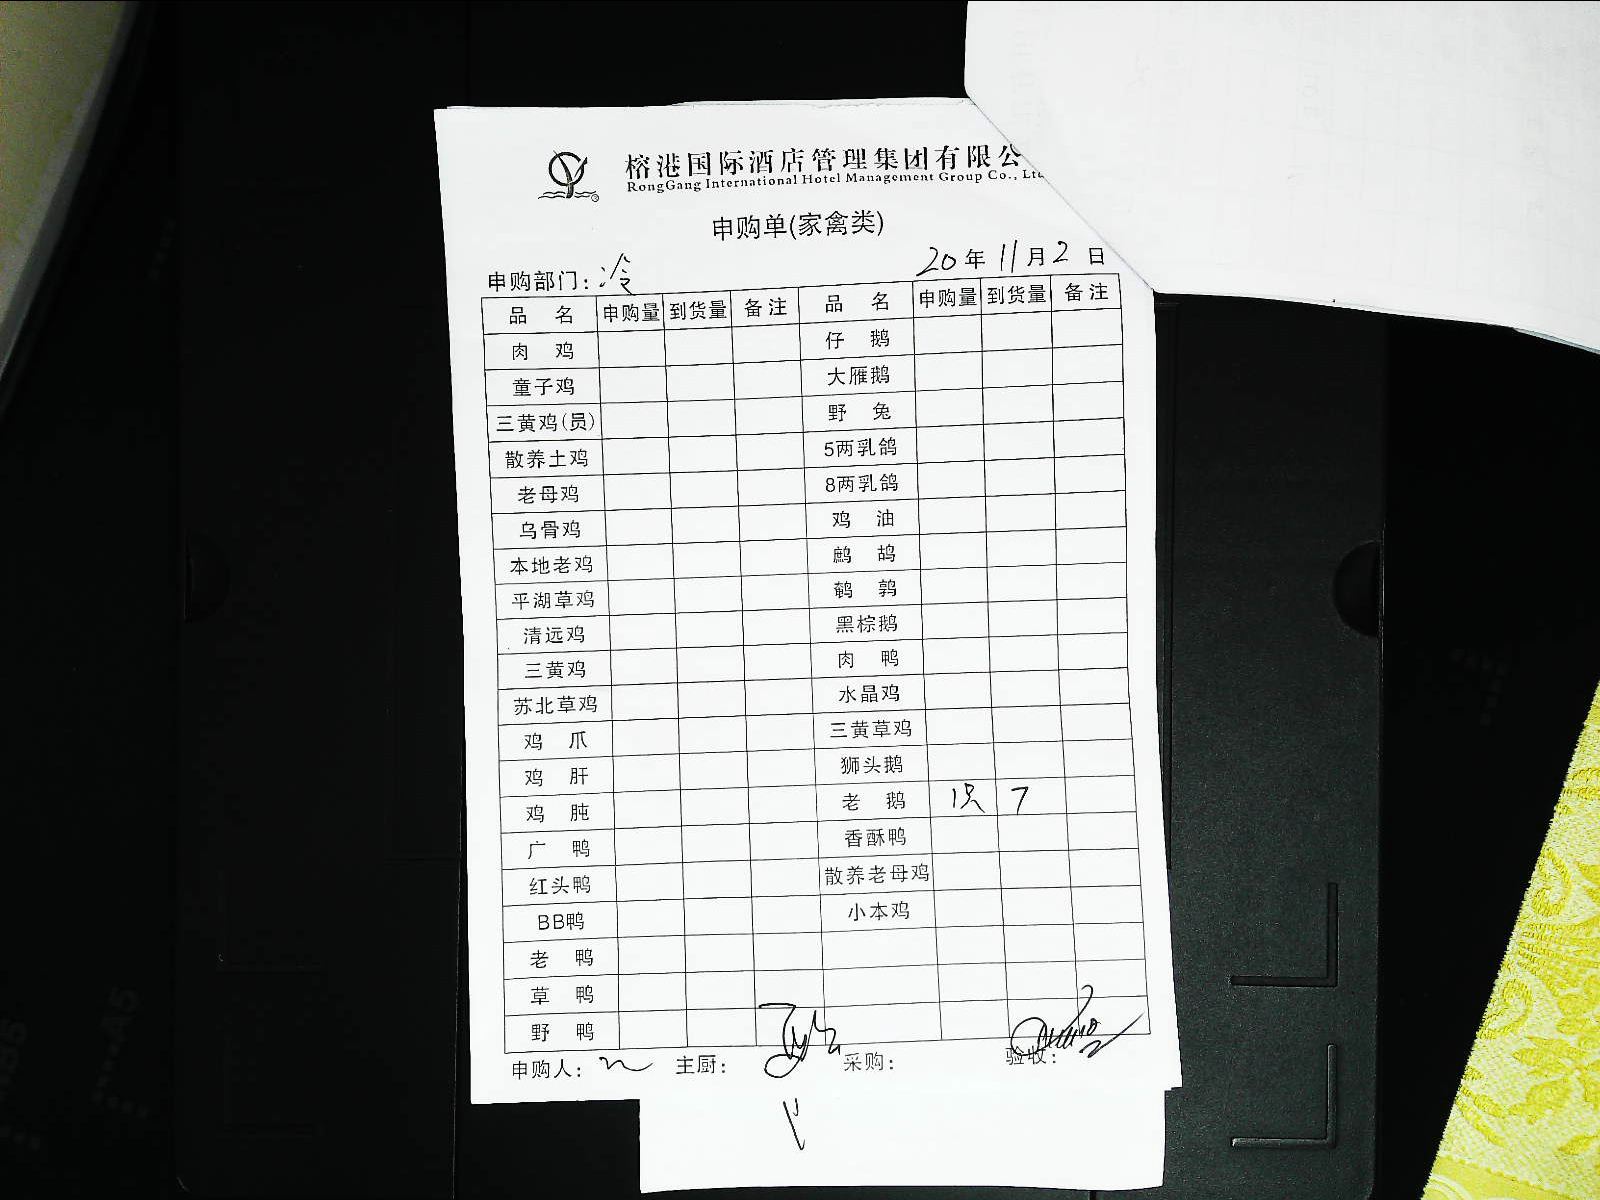 榕港国际酒店管理集团有限公
RongGang International Hotel Management Group Co., Ltd
申购单(家禽类)
申购部门: 冷 20年11月2日
品名 申购量 到货量 备注 品名 申购量 到货量 备注
肉鸡 仔鹅
童子鸡 大雁鹅
三黄鸡(员) 野兔
散养土鸡 5两乳鸽
老母鸡 8两乳鸽
乌骨鸡 鸡油
本地老鸡 鹧鸪
平湖草鸡 鹌鹑
清远鸡 黑棕鹅
三黄鸡 肉鸭
苏北草鸡 水晶鸡
鸡爪 三黄草鸡
鸡肝 狮头鹅
鸡肫 老鹅 1只 7
广鸭 香酥鸭
红头鸭 散养老母鸡
BB鸭 小本鸡
老鸭
草鸭
野鸭
申购人: 主厨: 采购: 验收: